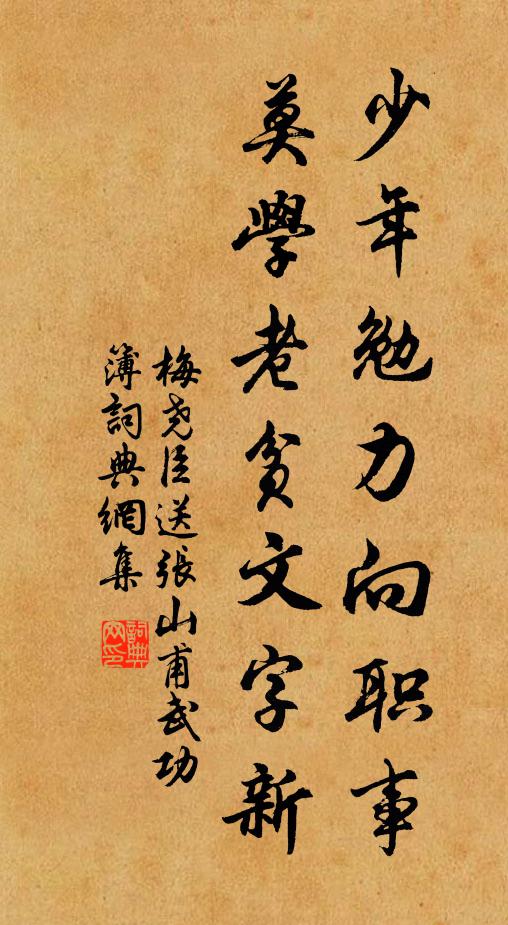 少年勉力向职事
莫學老貧文字新
梅尧臣送張山甫武功
簿詞典網集
詞典
网印